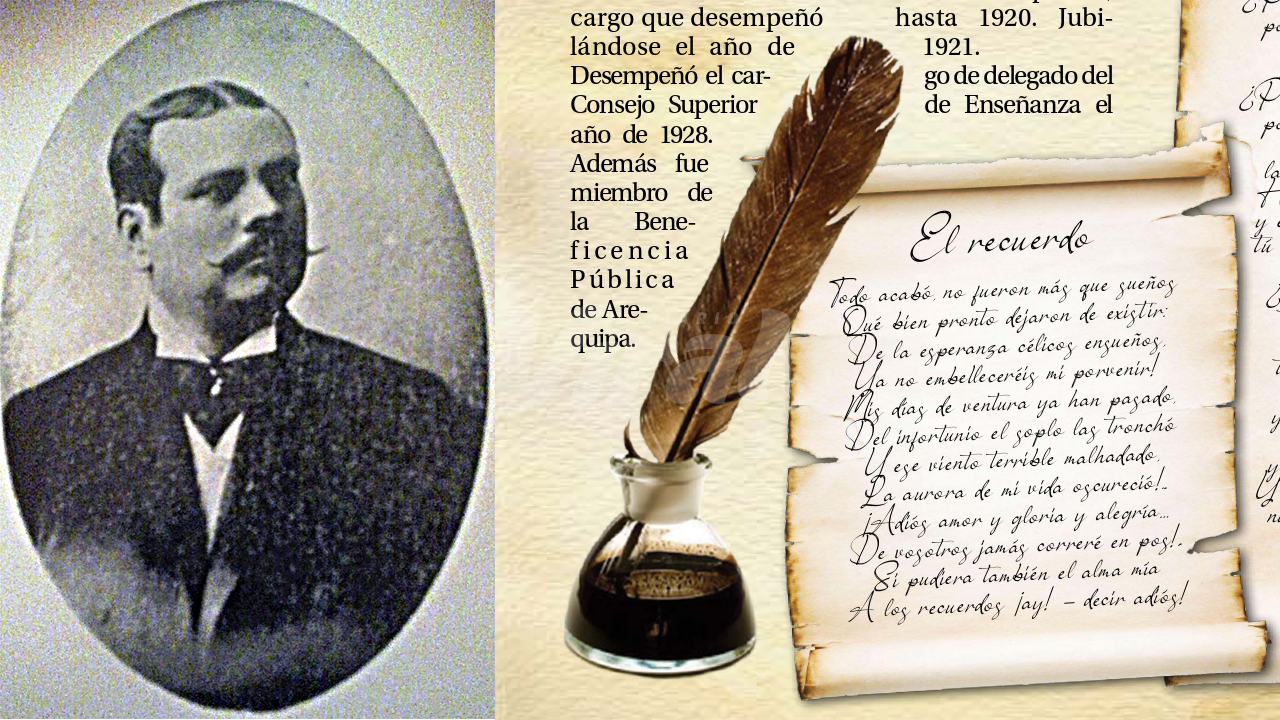 cargo que desempeñó
lándose el año de
Desempeñó el car-
Consejo Superior
año de 1928.
Además fue
miembro de
la Bene-
ficencia
Pública
de Are-
quipa.
hasta 1920. Jubi-
1921.
go de delegado del
de Enseñanza el
El recuerdo
Todo acabó, no fueron más que sueños
Qué bien pronto dejaron de existir:
De la esperanza célicos ensueños,
Ya no embelleceréis mi porvenir!
Mis días de ventura ya han pasado,
Del infortunio el soplo las tronchó
Y ese viento terrible malhadado,
La aurora de mi vida oscureció!..
¡Adiós amor y gloria y alegría...
De vosotros jamás correré en pos!.
Si pudiera también el alma mía
A los recuerdos ¡ay! – decir adiós!